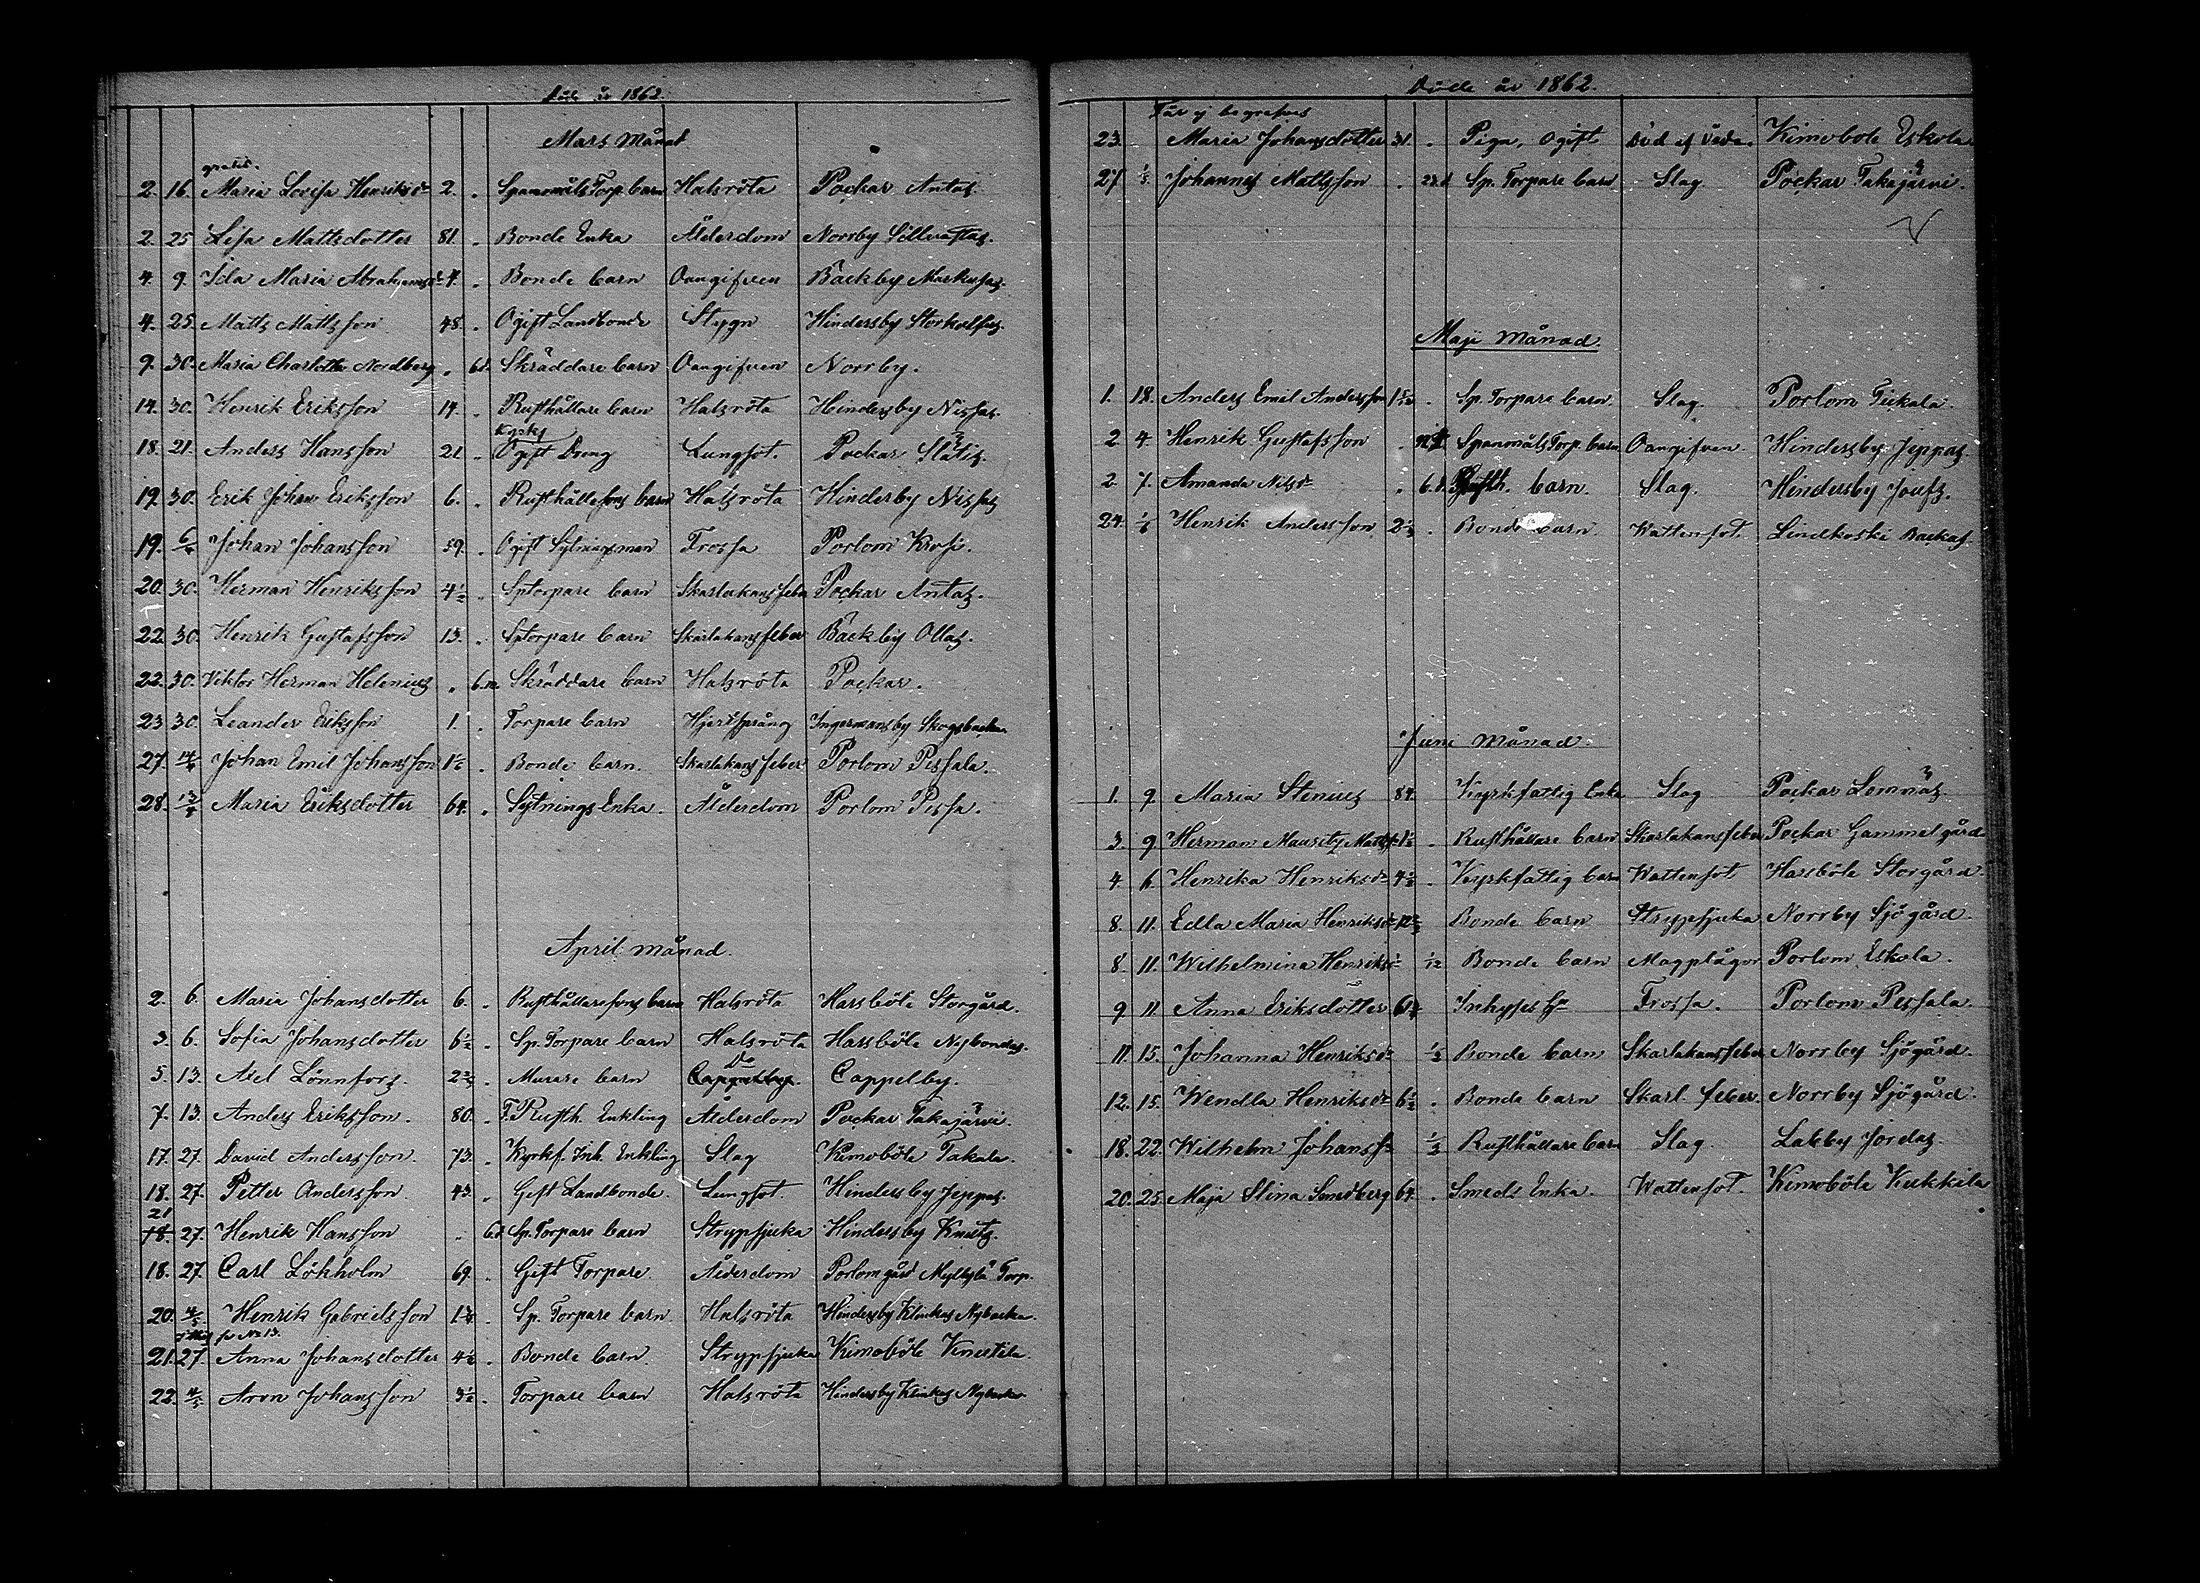 Död år 1862.
Mars Månad
gratis.
2. 16. Maria Lovisa Henriksdr 2. Spanmåls Torp. barn Halsröta Pockar Antas.
2. 25 Lisa Mattsdotter 81. Bonde Enka Ålderdom Norrby
4. 9. Ida Maria Abrahamsdr 4. Bonde barn Oangifven Backby Markusas.
4. 25. Matts Mattsson 48. Ogift Landbonde Stygn Hindersby Storholsas.
9. 30. Maria Charlotta Nordberg 6d. Skräddare barn Oangifven Norrby.
14. 30. Henrik Eriksson 14. Rusthållare barn Halsröta Hindersby Nissas
18. 21. Anders Hansson 21. Ogift Dreng Lungsot. Pockar Slätis.
19. 30. Erik Johan Eriksson 6. Rusthållesons barn Halsröta Hinderby Nissas
19. 6/4 Johan Johansson 59. Ogift Sytningsman Frossa Porlom Krosi.
20. 30. Herman Henriksson 4 1/2 Sptorpare barn Skarlakansfeber Pockar Antas.
22. 30. Henrik Gustafsson 13. Sptorpare barn Skarlakansfeber Backby Ollas.
22. 30. Viktor Herman Helenius 6m. Skräddare barn Halsröta Pockar.
23 30. Leander Eriksson 1. Torpare barn Hjertsprång Ingermansby Skogsbacka
27. 14/4 Johan Emil Johansson 1 1/2 Bonde barn. Skarlakansfeber Porlom Pessala.
28. 13/4 Maria Eriksdotter 64. Sytnings Enka. Ålderdom Porlom Pessa.
April månad.
2. 6. Maria Johansdotter 6. Rusthållaresons barn Halsröta Harsböle Storgård.
3. 6. Sofia Johansdotter 6 1/2 Sp. Torpare barn Halsröta Harsböle Nybondas.
5. 13. Axel Lönnfors. 2 Murare barn Do Cappelby.
7. 13. Anders Eriksson. 80. F.d. Rusth. Enkling Ålderdom Pockar Takajärvi.
17. 27. David Andersson. 73. Kyrkf. Inh. Enkling Slag Kimoböle Takala.
18. 27. Petter Andersson. 43. Gift Landbonde. Lungsot. Hindersby Jeppas.
21
18. 27. Henrik Hansson 6d. Sp. Torpare barn Strypsjuka Hindersby Knuts.
18. 27. Carl Lökholm 69. Gift Torpare. Ålderdom Porlomgård Myllylä Torp.
20. 4/5 Henrik Gabrielsson Sp. Torpare barn Halsröta Hindersby Klinkas Nybacka.
21. 27. Anna Johansdotter 4 1/2 Bonde barn. Strypsjuka Kimoböle Knuutila.
22. 4/5 Aron Johansson 3 1/2 Torpare barn Halsröta Hindersby Klinkas Nybacka
Döde år 1862.
Får ej begrafvas
23. Maria Johansdotter 31. Piga, ogift Död af Våda. Kimobole Eskola
27 1/5 Johannes Mattsson 23d Sp. Torpare barn Slag Pockar Takajärvi.
Maji Månad.
1. 18. Anders Emil Andersson Sp. Torpare barn. Slag. Porlom Tiikala.
2 4 Henrik Gustafsson Spanmåls Torp. barn Oangifven. Hindersby Jeppas.
2 7. Amanda Nilsdr 6.d. Rusth. barn. Slag. Hindersby Joufs.
24. 1/6 Henrik Andersson 2 1/2 Bonde barn. Wattensot. Lindkoski Backas.
Juni Månad.
1. 9. Maria Stenius 84. Kyrkfattig Enka Slag Pockar Lomnäs.
3. 9. Herman Mauritz Mattss. 1 1/2 Rusthållare barn Skarlakansfeber Pockar Gammelgård
4. 6 Henrika Henriksdr 4 1/2 Kyrkfattig barn Wattensot. Harsböle Storgård.
8. 11. Edla Maria Henriksdr Bonde barn Strypsjuka Norrby Sjögård.
8. 11. Wilhelmina Henriksdr 1/12 Bonde barn Magplågor Porlom Eskola.
9 11. Anna Eriksdotter Inhyses Frossa. Porlom Pessala.
11. 15. Johanna Henriksdr 1/2 Bonde barn Skarlakansfeber Norrby Sjögård.
12. 15. Wendla Henriksdr 6 1/2 Bonde barn Skarl. feber. Norrby Sjögård.
18. 22. Wilhelm Johanss. 1/2 Rusthållare barn Slag. Labby Jordas.
20. 25. Maja Stina Sundberg 64. Smeds Enka. Wattensot. Kimoböle Kukkila